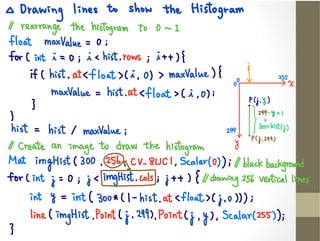 △ Drawing lines to show the Histogram
// rearrange the histogram to 0 ~ 1
float maxValue = 0 ;
for ( int i = 0 ; i < hist.rows ; i++ ){
if ( hist.at<float>(i, 0) > maxValue ){
maxValue = hist.at<float>(i, 0);
}
}
hist = hist / maxValue ;
// Create an image to draw the histogram
Mat imgHist (300, 256, CV_8UC1, Scalar(0)); // black background
for ( int j = 0 ; j < imgHist.cols ; j++ ) { // drawing 256 vertical lines
int y = int ( 300*(1-hist.at<float>(j,0)));
line ( imgHist, Point(j,299), Point(j,y), Scalar(255));
}
j
0
0
255
x
P(j,y)
299-y+1
=
300×hist(j)
299
P(j,299)
y